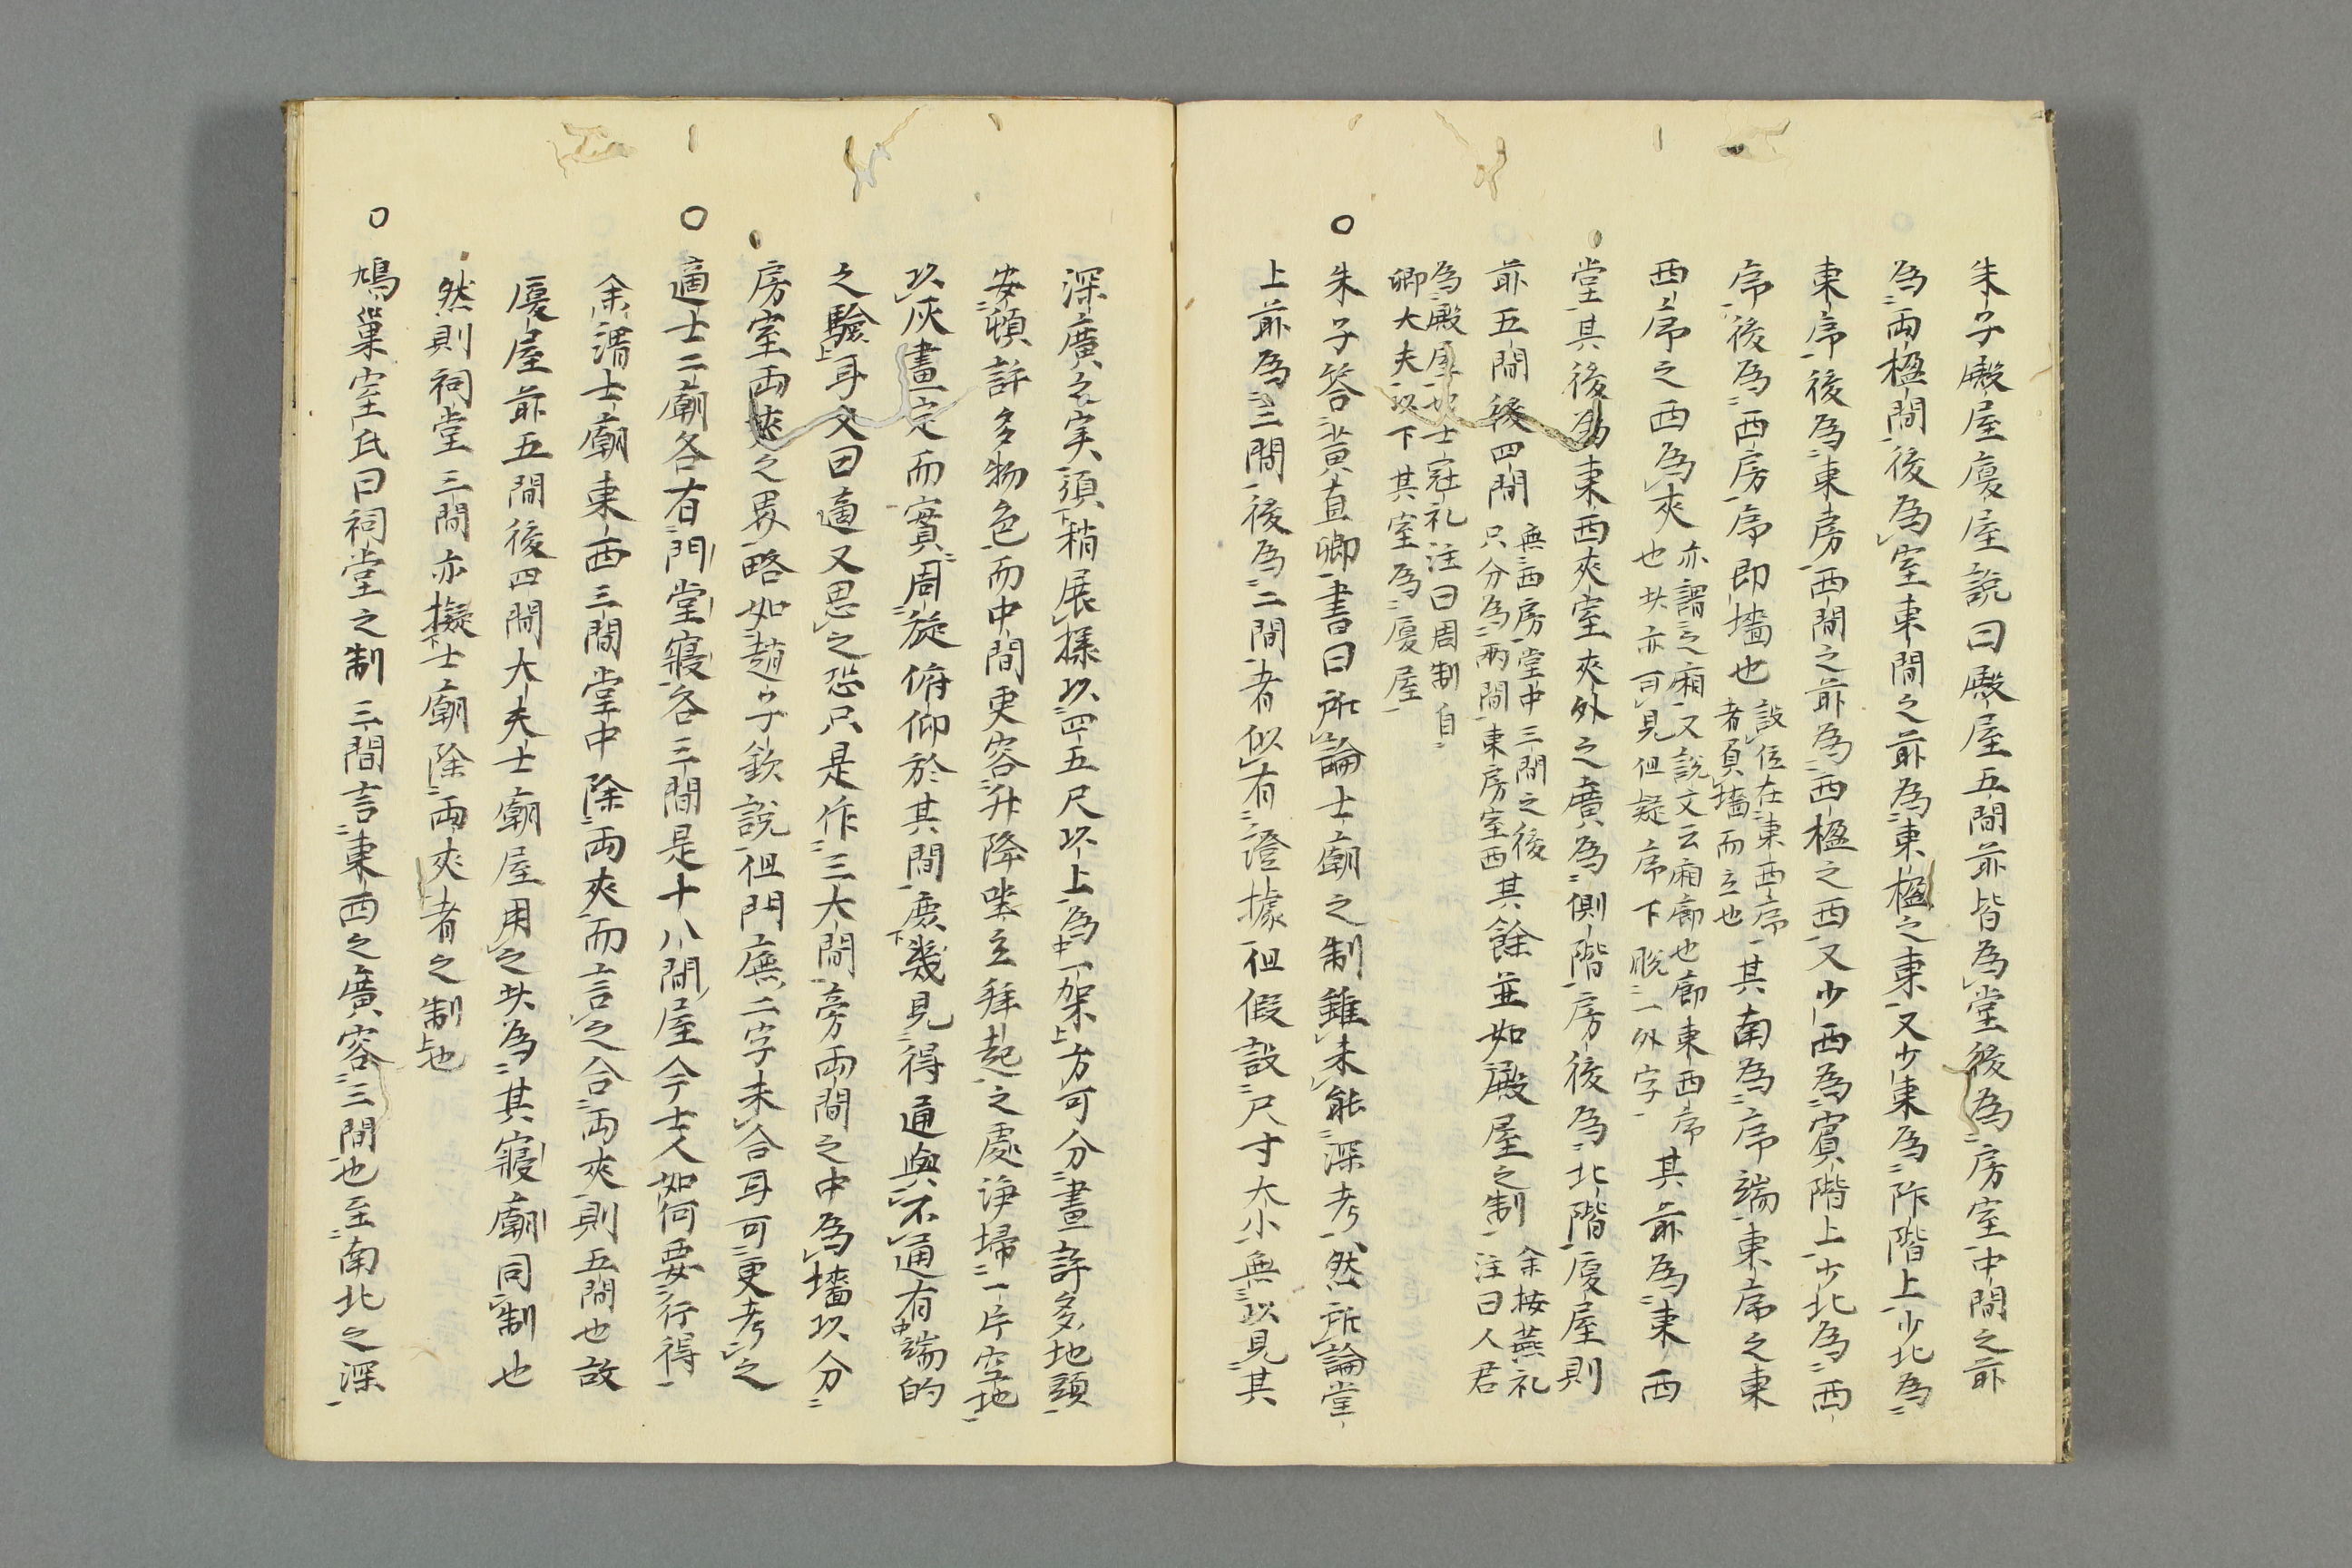 朱子殿屋廈屋説曰殿屋五間前皆為堂後為房室中間之前
為両楹間後為室東間之前為東楹之東又少東為阼階上少北為
東序後為東房西間之前為西楹之西又少西為賓階上少北為西
序後為西房序即墻也設位在東西序者負墻而立也其南為序端東序之東
西序之西為夾亦謂之廂又説文云廂廊也廊東西序也此亦可見但疑序下脱一外字其前為東西
堂其後為東西夾室夾外之廣為側階房後為北階廈屋則
前五間後四間無西房堂中三間之後只分為両間東房室西其餘並如殿屋之制余按燕礼注曰人君
為殿屋也士冠礼注曰周制自
卿大夫以下其室為廈屋
○朱子答黄直卿書曰所論士廟之制雖未能深考然所論堂
上前為三間後為二間者似有證據但假設尺寸大小無以見其
深廣之実須稍展様以四五尺以上為一架方可分畫許多地頭
安頓許多物色而中間更容升降坐立拜起之處浄埽一片空地
以灰畫定而實周旋俯仰於其間庶幾見得通與不通有端的
之驗耳又曰適又思之恐只是作三大間旁両間之中為墻以分
房室両夾之界略如趙子欽説但門廡二字未合耳可更考之
○適士二廟各有門堂寢各三間是十八間屋今士人如何要行得
余謂士廟東西三間堂中除両夾而言之合両夾則五間也故
廈屋前五間後四間大夫士廟屋用之共為其寢廟同制也
然則祠堂三間亦擬士廟除両夾者之制也
○鳩巣室氏曰祠堂之制三間言東西之廣容三間也至南北之深